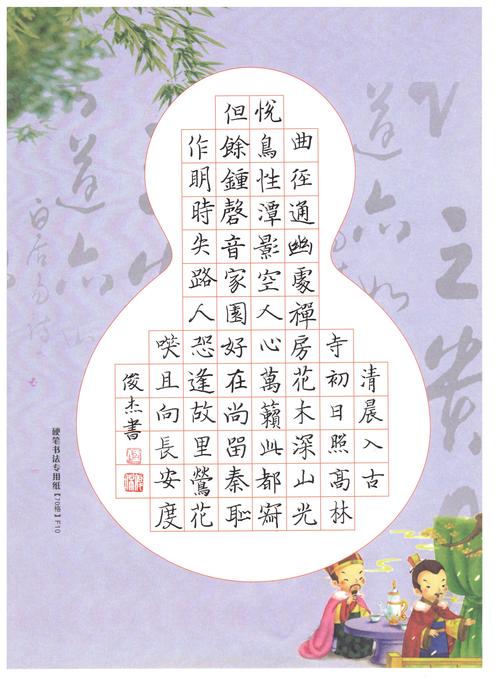 清晨入古
寺初日照髙林
曲径通幽處禪房花木深山光
悅鳥性潭影空人心萬籟此都寂
但餘鍾磬音家園好在尚留秦恥
作明時失路人恐逢故里鶯花
咲且向長安度
俊杰書
硬笔书法专用纸【70格】F10